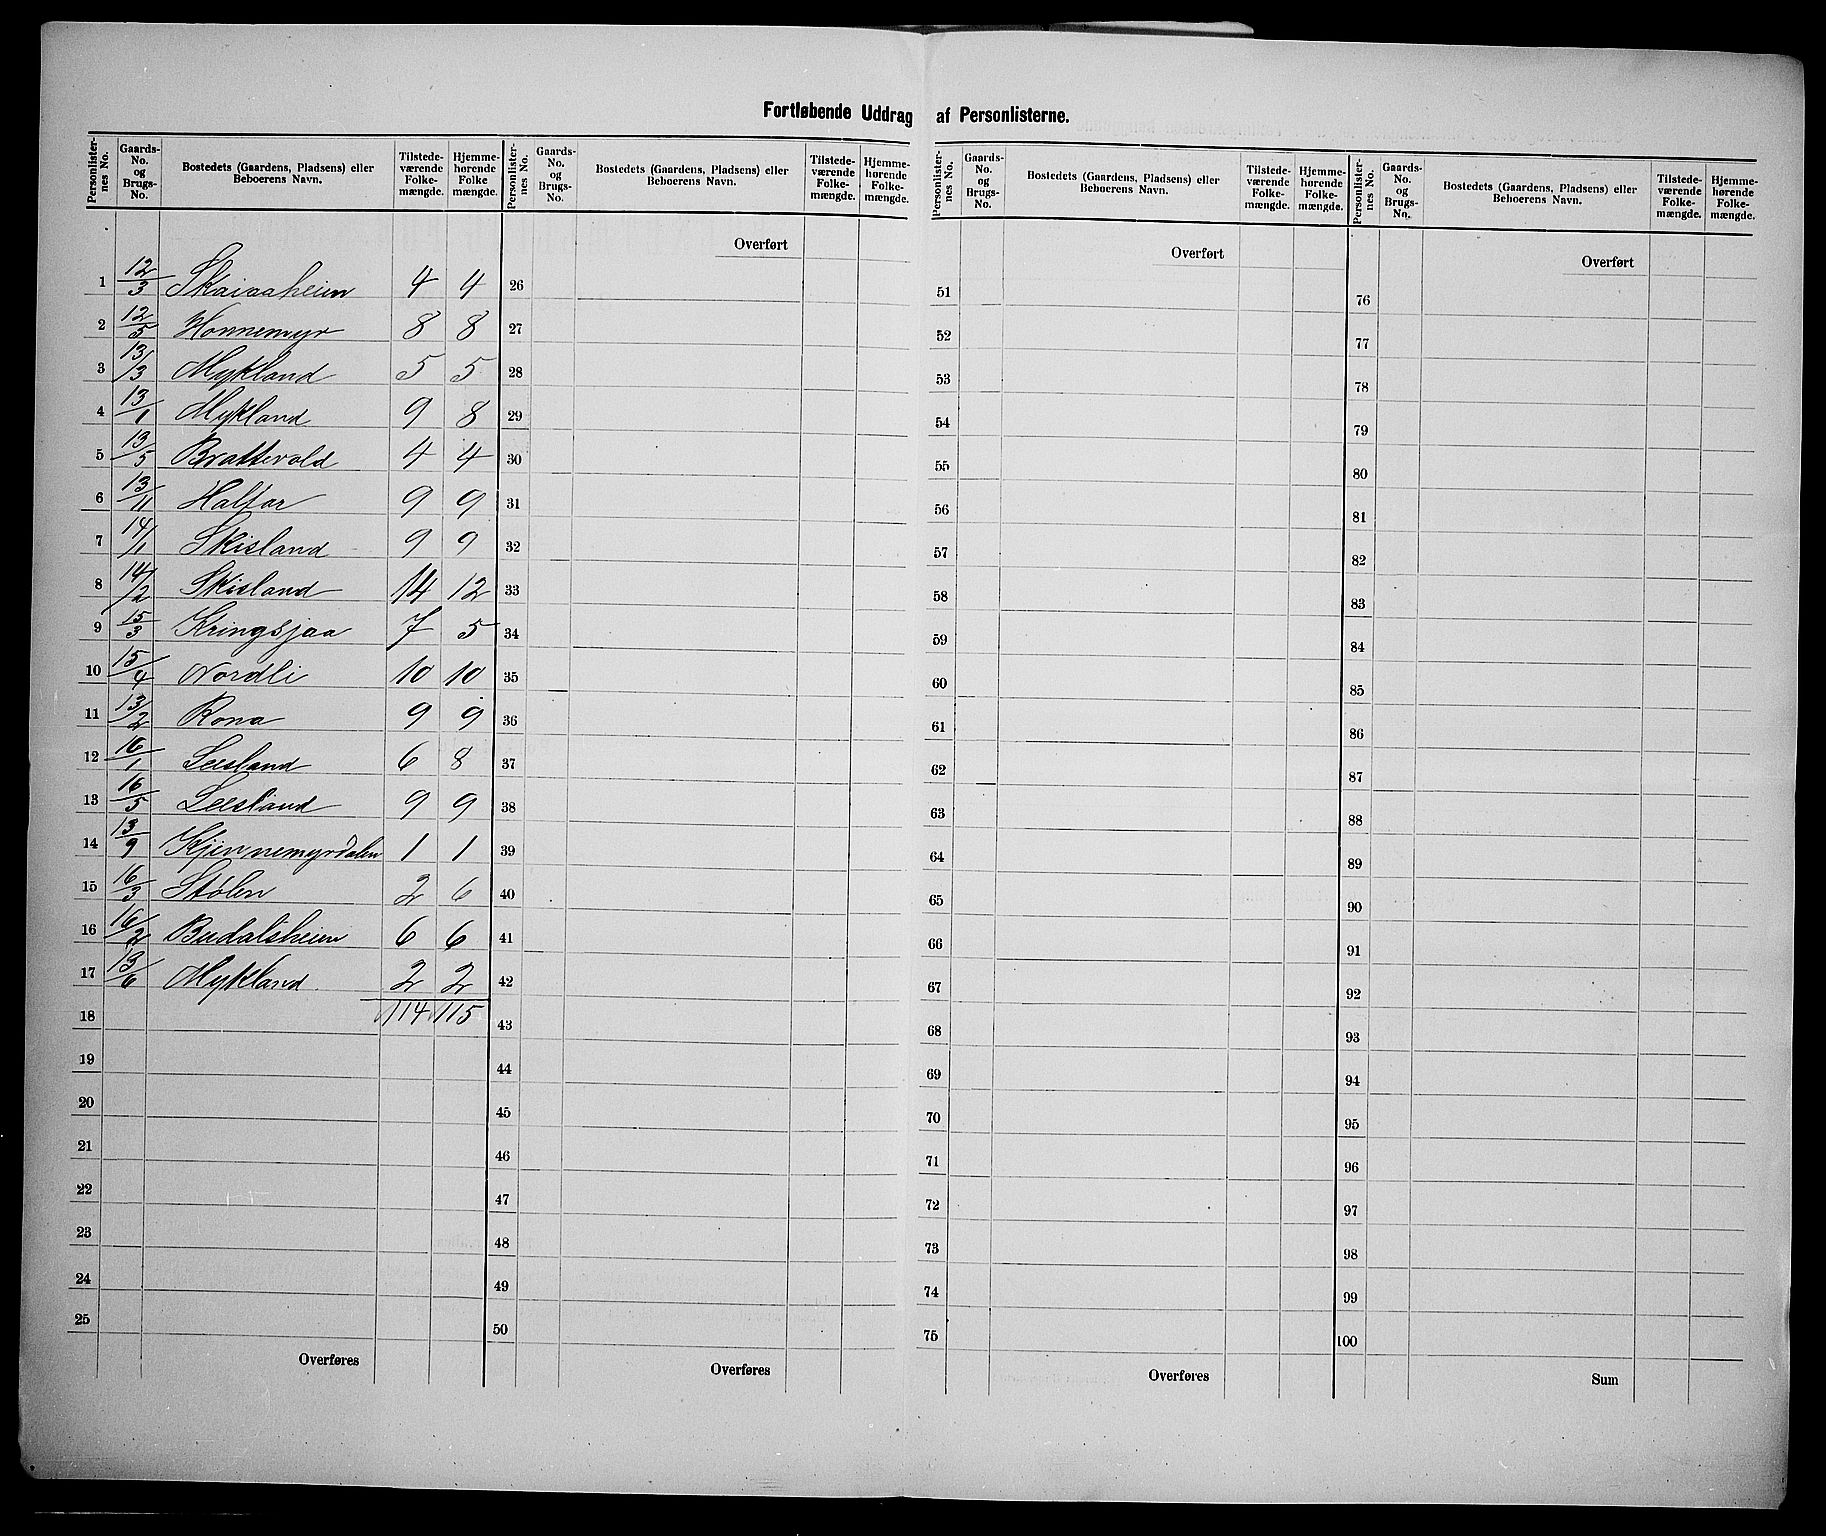 Fortløbende Uddrag af Personlisterne.
Personlister-nes No. | Gaards-No. og Brugs-No. | Bostedets (Gaardens, Pladsens) eller Beboerens Navn. | Tilstede-værende Folke-mængde. | Hjemme-hørende Folke mængde.
1 12/3 Skaiaaheien 4 4
2 12/5 Honnemyr 8 8
3 13/3 Mykland 5 5
4 13/1 Mykland 9 8
5 13/5 Brattevold 4 4
6 13/11 Haltar 9 9
7 14/1 Skisland 9 9
8 14/2 Skisland 14 12
9 15/3 Kringsjaa 7 5
10 15/4 Nordli 10 10
11 13/2 Rona 9 9
12 16/1 Leesland 6 8
13 16/5 Leesland 9 9
14 13/9 Kjinnemyrdalen 1 1
15 16/3 Stølen 2 6
16 16/2 Budalsheien 6 6
17 13/6 Mykland 2 2
18 114 115
19
20
21
22
23
24
25
Overføres
Personlister-nes No. | Gaards-No. og Brugs-No. | Bostedets (Gaardens, Pladsens) eller Beboerens Navn. | Tilstede-værende Folke-mængde. | Hjemme-hørende Folke-mængde.
Overført
26
27
28
29
30
31
32
33
34
35
36
37
38
39
40
41
42
43
44
45
46
47
48
49
50
Overføres
Personlister-nes No. | Gaards-No. og Brugs-No. | Bostedets (Gaardens, Pladsens) eller Beboerens Navn. | Tilstede-værende Folke-mængde. | Hjemme-hørende Folke-mængde.
Overført
51
52
53
54
55
56
57
58
59
60
61
62
63
64
65
66
67
68
69
70
71
72
73
74
75
Overføres
Personlister-nes No. | Gaards-No. og Brugs-No. | Bostedets (Gaardens, Pladsens) eller Beboerens Navn. | Tilstede-værende Folke-mængde. | Hjemme-hørende Folke-mængde.
Overført
76
77
78
79
80
81
82
83
84
85
86
87
88
89
90
91
92
93
94
95
96
97
98
99
100
Sum